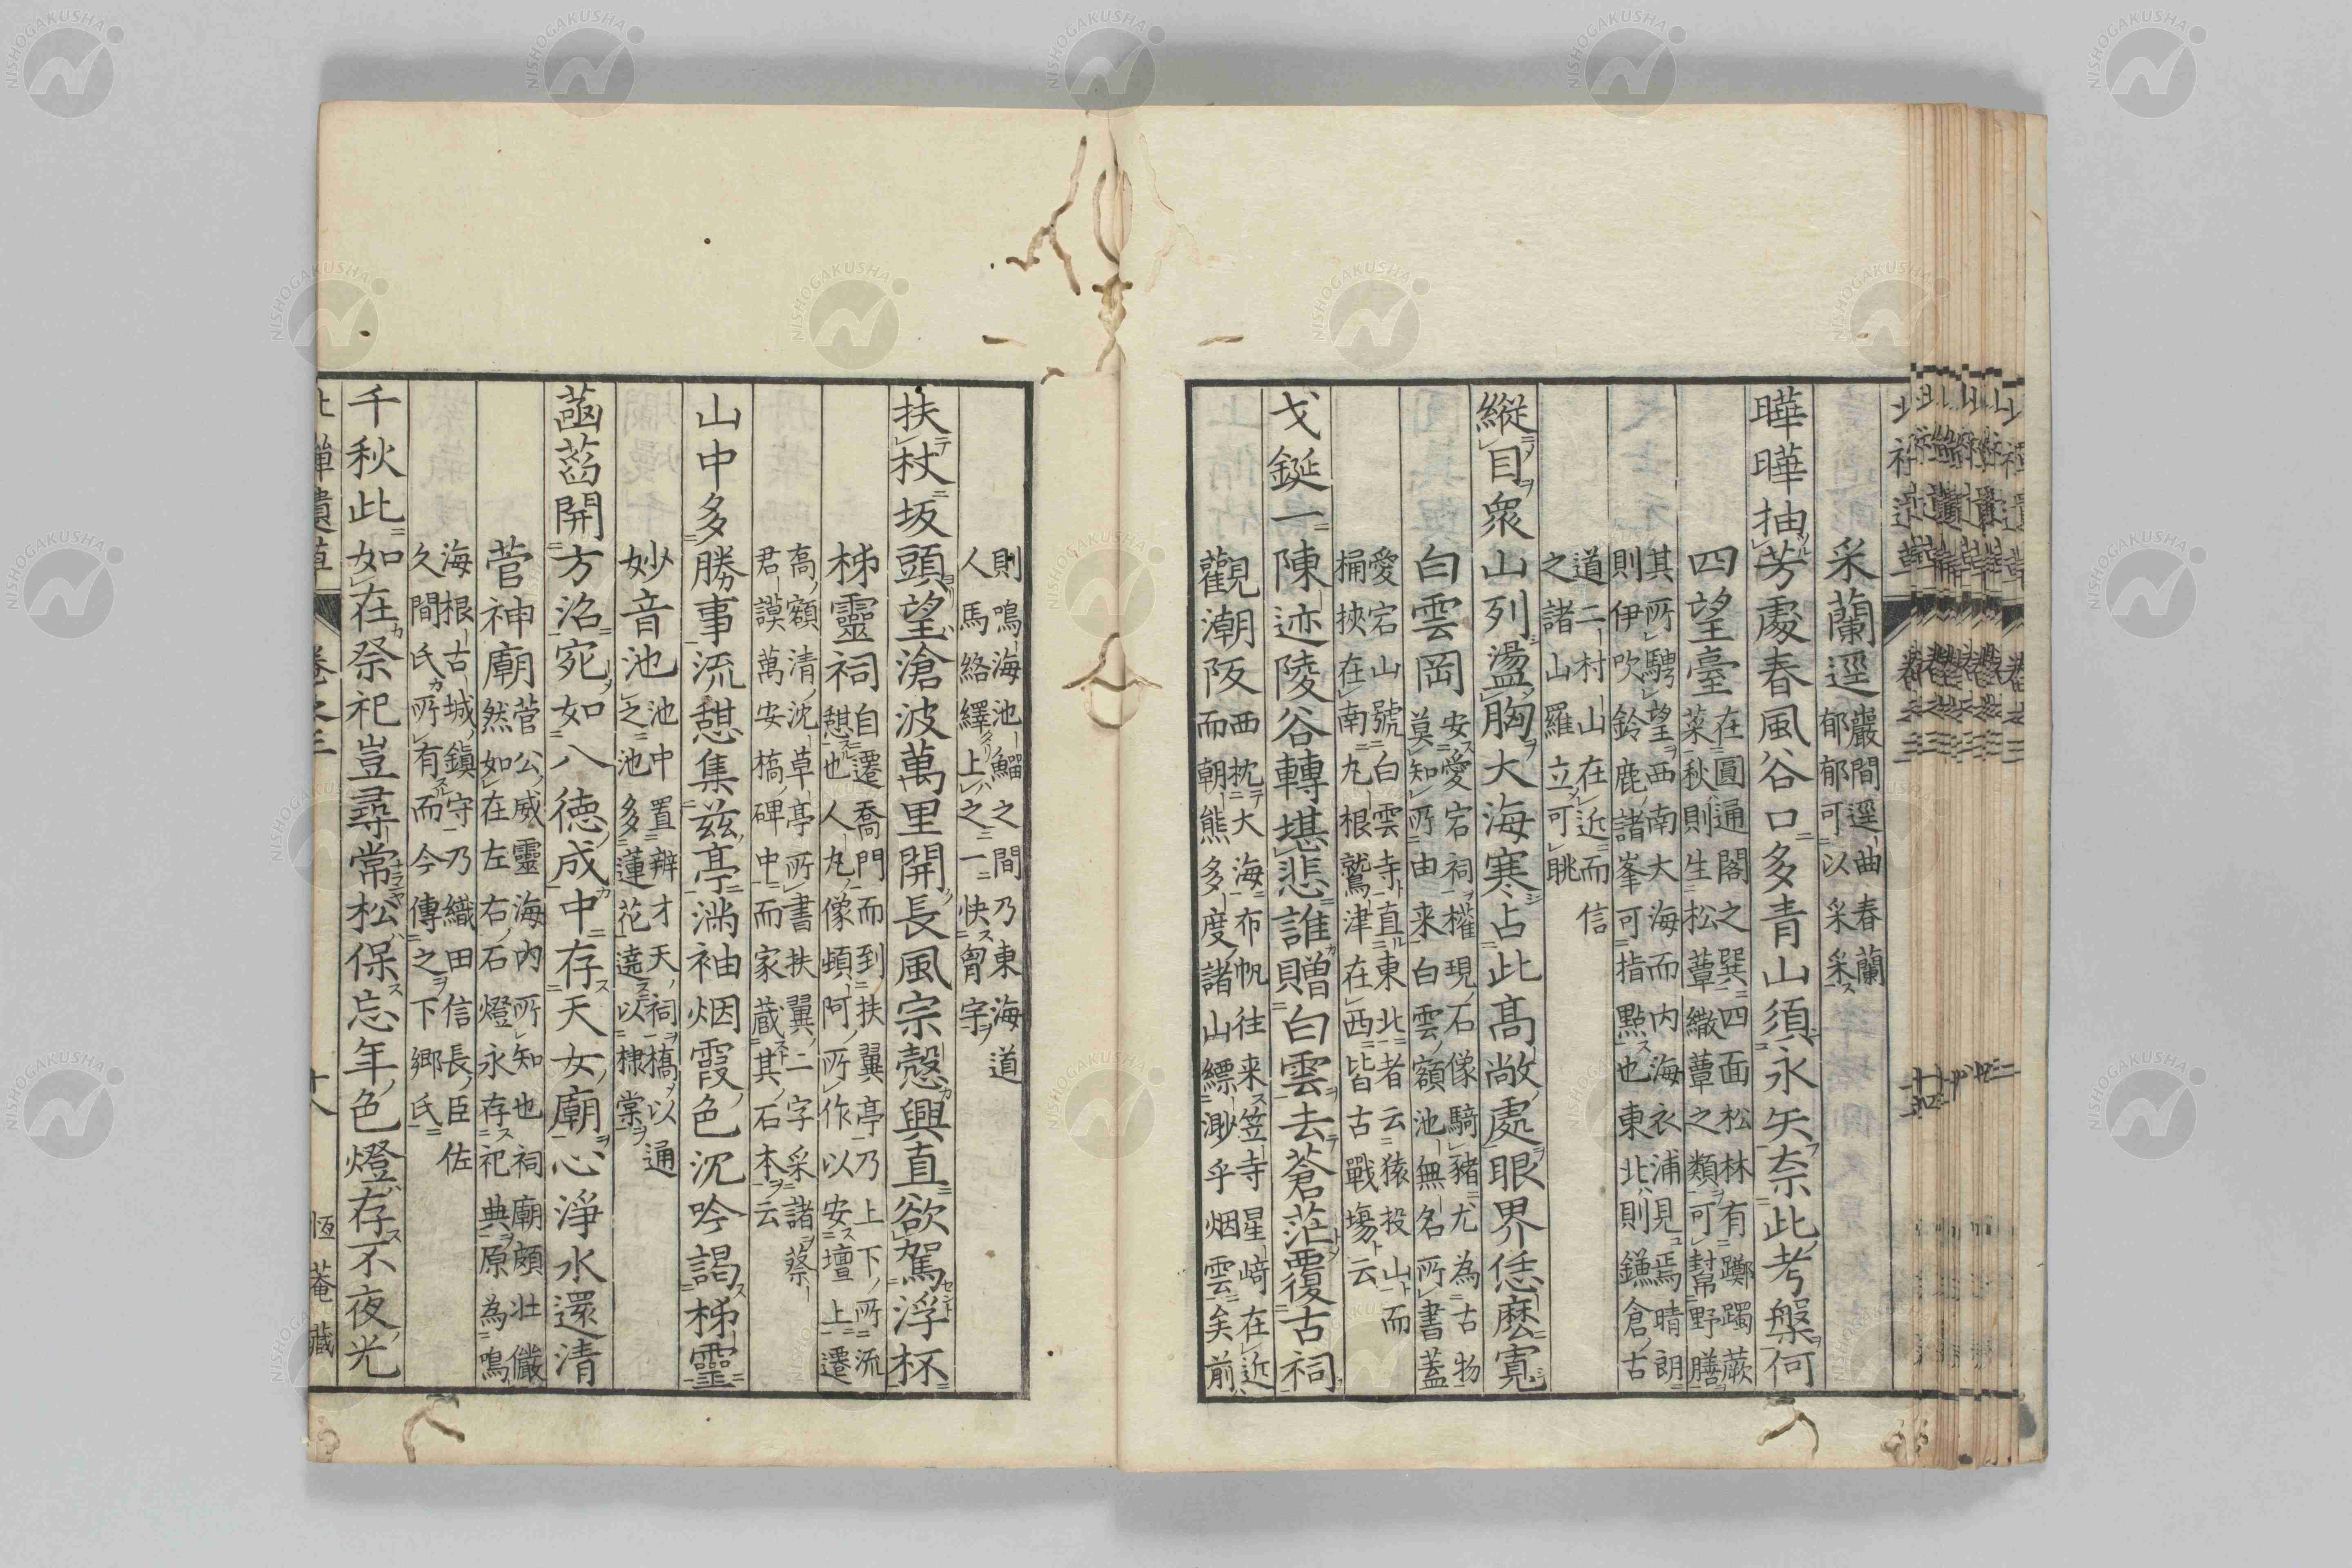 采蘭逕 巖間逕曲春蘭
郁郁可以采采
曄曄抽芳處春風谷口多青山須永矢奈此考槃何
四望臺 在圓通閣之巽四面松林有躑躅蕨
菜秋則生松蕈繖蕈之類可幇野膳
其所騁望西南大海而内海衣浦見焉晴朗
則伊吹鈴鹿諸峯可指點也東北則鎌倉古
道二村山山在近而信
之諸山羅立可眺
縱目衆山列盪胸大海寒占此高敞處眼界恁麽寬
白雲岡 安愛宕祠權現石像騎豬尤為古物
莫知所由来白雲額池無名所書蓋
愛宕山號白雲寺直東北者云猿投山而
桶挾在南丸根鷲津在西皆古戰場云
戈鋋一陳迹陵谷轉堪悲誰贈白雲去蒼茫覆古祠
觀潮阪 西枕大海布帆往来笠寺星﨑在近
而朝熊多度諸山縹渺乎烟雲矣前
則鳴海池鯔之間乃東海道
人馬絡繹上之一快胷宇
扶杖坂頭望滄波萬里開長風宗愨興直欲駕浮杯
梯靈祠 自遷喬門而到扶翼亭乃上下所流
憇也人丸像頓阿所作以安壇上遷
喬額清沈草亭所書扶翼二字采諸蔡
君謨萬安橋碑中而家蔵其石本云
山中多勝事流憇集兹亭滿袖烟霞色沉吟謁梯靈
妙音池 池中置辨才天祠橋以通
之池多蓮花遶以棣棠
菡萏開方沼宛如八徳成中存天女廟心淨水還清
菅神廟 菅公威靈海内所知也祠廟頗壮儼
然如在左右石燈永存祀典原為鳴
海根古城鎭守乃織田信長臣佐
久間氏所有而今傳之下郷氏
千秋此如在祭祀豈尋常松保忘年色燈存不夜光
北禪遺草 卷之三 十八 恆菴藏